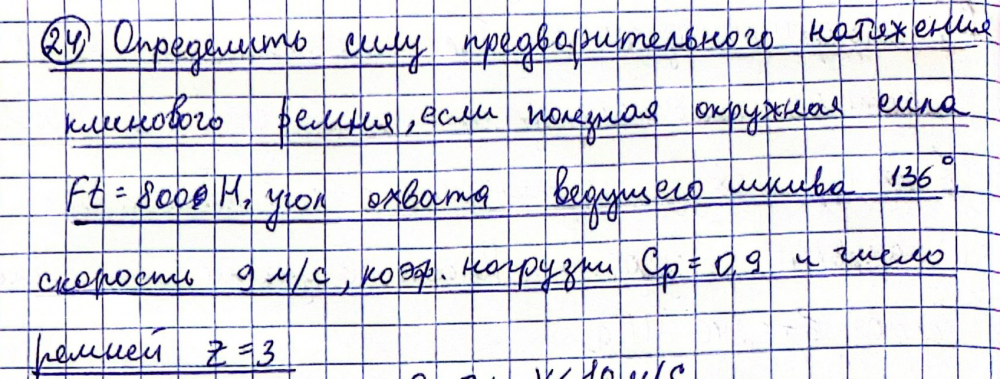 24 Определить силу предварительного натяжения
клинового ремня, если полезная окружная сила
Ft = 8000 Н, угол охвата ведущего шкива 136°,
скорость 9 м/с, коэф. нагрузки Cp = 0,9 и число
ремней z = 3
V < 10 м/с